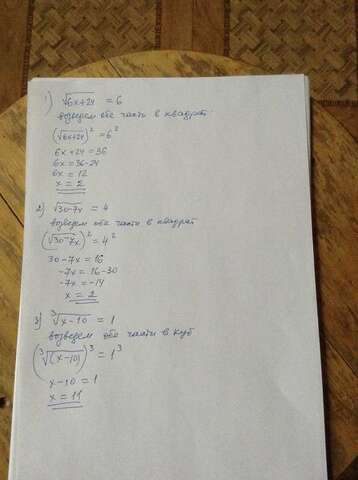 1) √6x+24 = 6
возведем обе части в квадрат:
(√6x+24)² = 6²
6x+24 = 36
6x = 36-24
6x = 12
x = 2
2) √30-7x = 4
возведем обе части в квадрат
(√30-7x)² = 4²
30-7x = 16
-7x = 16-30
-7x = -14
x = 2
3) ∛x-10 = 1
возведем обе части в куб
(∛(x-10))³ = 1³
x-10 = 1
x = 11